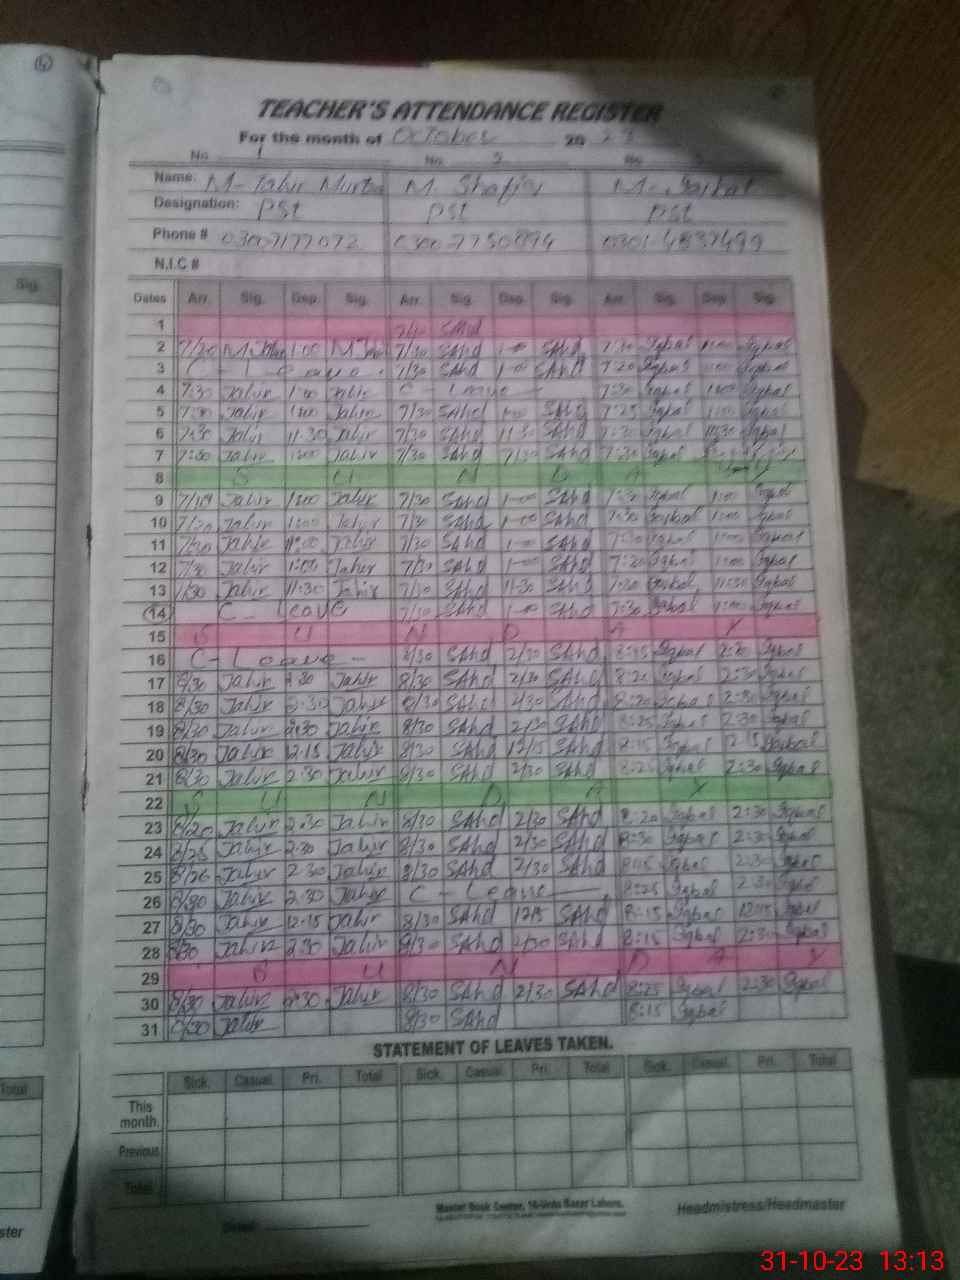 Sig.
TEACHER'S ATTENDANCE REGISTER
For the month of October 20 23
No 1 No 2 No
Name: M- Tahir M. Shafiq M- Iqbal
Designation: PST PST PST
Phone # 03007177072 0300-7750894 0301-4837499
N.I.C #
Dates Arr. Sig. Dep. Sig. Arr. Sig. Dep. Sig. Arr. Sig. Dep. Sig.
1 SAhd
2 7/20 1:00 7/30 SAhd 1-00 SAhd 7:30 Iqbal 1:00 Iqbal
3 C - Leave 7/30 SAhd 1-00 SAhd 7:20 Iqbal 1:00 Iqbal
4 7:30 Tahir 1:00 Tahir C - Leave 7:30 Iqbal 1:00 Iqbal
5 7:30 Tahir 1:00 Tahir 7/30 SAhd 1-00 SAhd 7:25 Iqbal 1:00 Iqbal
6 7:30 Tahir 11.30 Tahir 7/30 SAhd 11-30 SAhd 7:30 Iqbal 11:30 Iqbal
7 7:30 Tahir 1:00 Tahir 7/30 SAhd SAhd 7:20 Iqbal
8 S U N D A
9 Tahir 1:00 Tahir 7/30 SAhd 1-00 SAhd Iqbal 1:00 Iqbal
10 7/20 Tahir 1:00 Tahir 7/30 SAhd 1-00 SAhd 7:30 Iqbal 1:00 Iqbal
11 7/30 Tahir Tahir 7/30 SAhd 1-00 SAhd 7:20 Iqbal 1:00 Iqbal
12 7/30 Tahir 1:00 Tahir 7/30 SAhd 1-00 SAhd 7:20 Iqbal 1:00 Iqbal
13 7/30 Tahir 11:30 Tahir 7/30 SAhd 11-30 SAhd 7:20 Iqbal 11:30 Iqbal
14 C - Leave 7/30 SAhd 1-00 SAhd 7:30 Iqbal 1:00 Iqbal
15 S U N D A Y
16 C - Leave - 8/30 SAhd 2/30 SAhd 8:15 Iqbal 2:30 Iqbal
17 8/30 Tahir 2.30 Tahir 8/30 SAhd 2/30 SAhd 8:20 Iqbal 2:30 Iqbal
18 8/30 Tahir 2:30 Tahir 8/30 SAhd 2/30 SAhd 8:20 Iqbal 2:30 Iqbal
19 8/30 Tahir 2:30 Tahir 8/30 SAhd 2/30 SAhd 8:25 Iqbal 2:30 Iqbal
20 8/30 Tahir 12.15 Tahir 8/30 SAhd 12/15 SAhd 8:15 Iqbal Iqbal
21 8/30 Tahir 2.30 Tahir 8/30 SAhd 2/30 SAhd 8:25 Iqbal 2:30 Iqbal
22 S U N D A Y
23 8/20 Tahir 2.30 Tahir 8/30 SAhd 2/30 SAhd 8:20 Iqbal 2:30 Iqbal
24 8/25 Tahir 2.30 Tahir 8/30 SAhd 2/30 SAhd 8:30 Iqbal 2:30 Iqbal
25 8/26 Tahir 2.30 Tahir 8/30 SAhd 2/30 SAhd 8:15 Iqbal 2:30 Iqbal
26 8/30 Tahir 2.30 Tahir C - Leave 8:25 Iqbal 2:30 Iqbal
27 8/30 Tahir 12.15 Tahir 8/30 SAhd 12/15 SAhd 8:15 Iqbal 12:15 Iqbal
28 8/30 Tahir 2.30 Tahir 8/30 SAhd 2/30 SAhd 8:15 Iqbal 2:30 Iqbal
29 S U N D A Y
30 8/30 Tahir 2.30 Tahir 8/30 SAhd 2/30 SAhd 8:25 Iqbal 2:30 Iqbal
31 8/30 Tahir 8/30 SAhd 8:15 Iqbal
STATEMENT OF LEAVES TAKEN.
Sick. Casual. Pri. Total Sick. Casual Pri. Total Sick. Casual. Pri. Total
This month.
Previous
Total
Master Book Center, 16-Urdu Bazar Lahore.
Headmistress/Headmaster
31-10-23 13:13